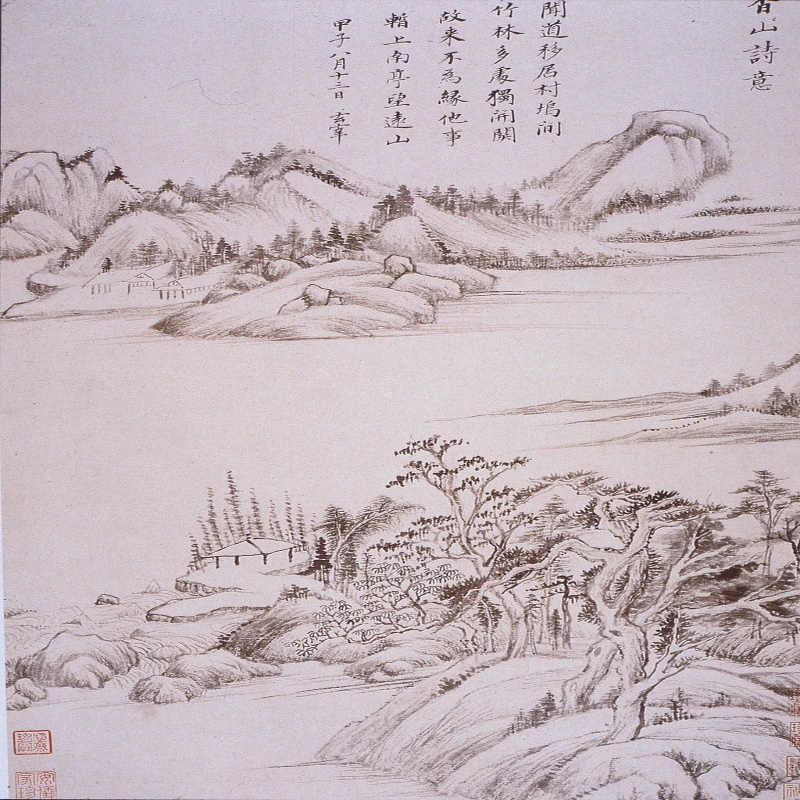 香山詩意
聞道移居村塢间
竹林多處獨開關
故来不為緣他事
暫上南亭望遠山
甲子八月十三日 玄宰